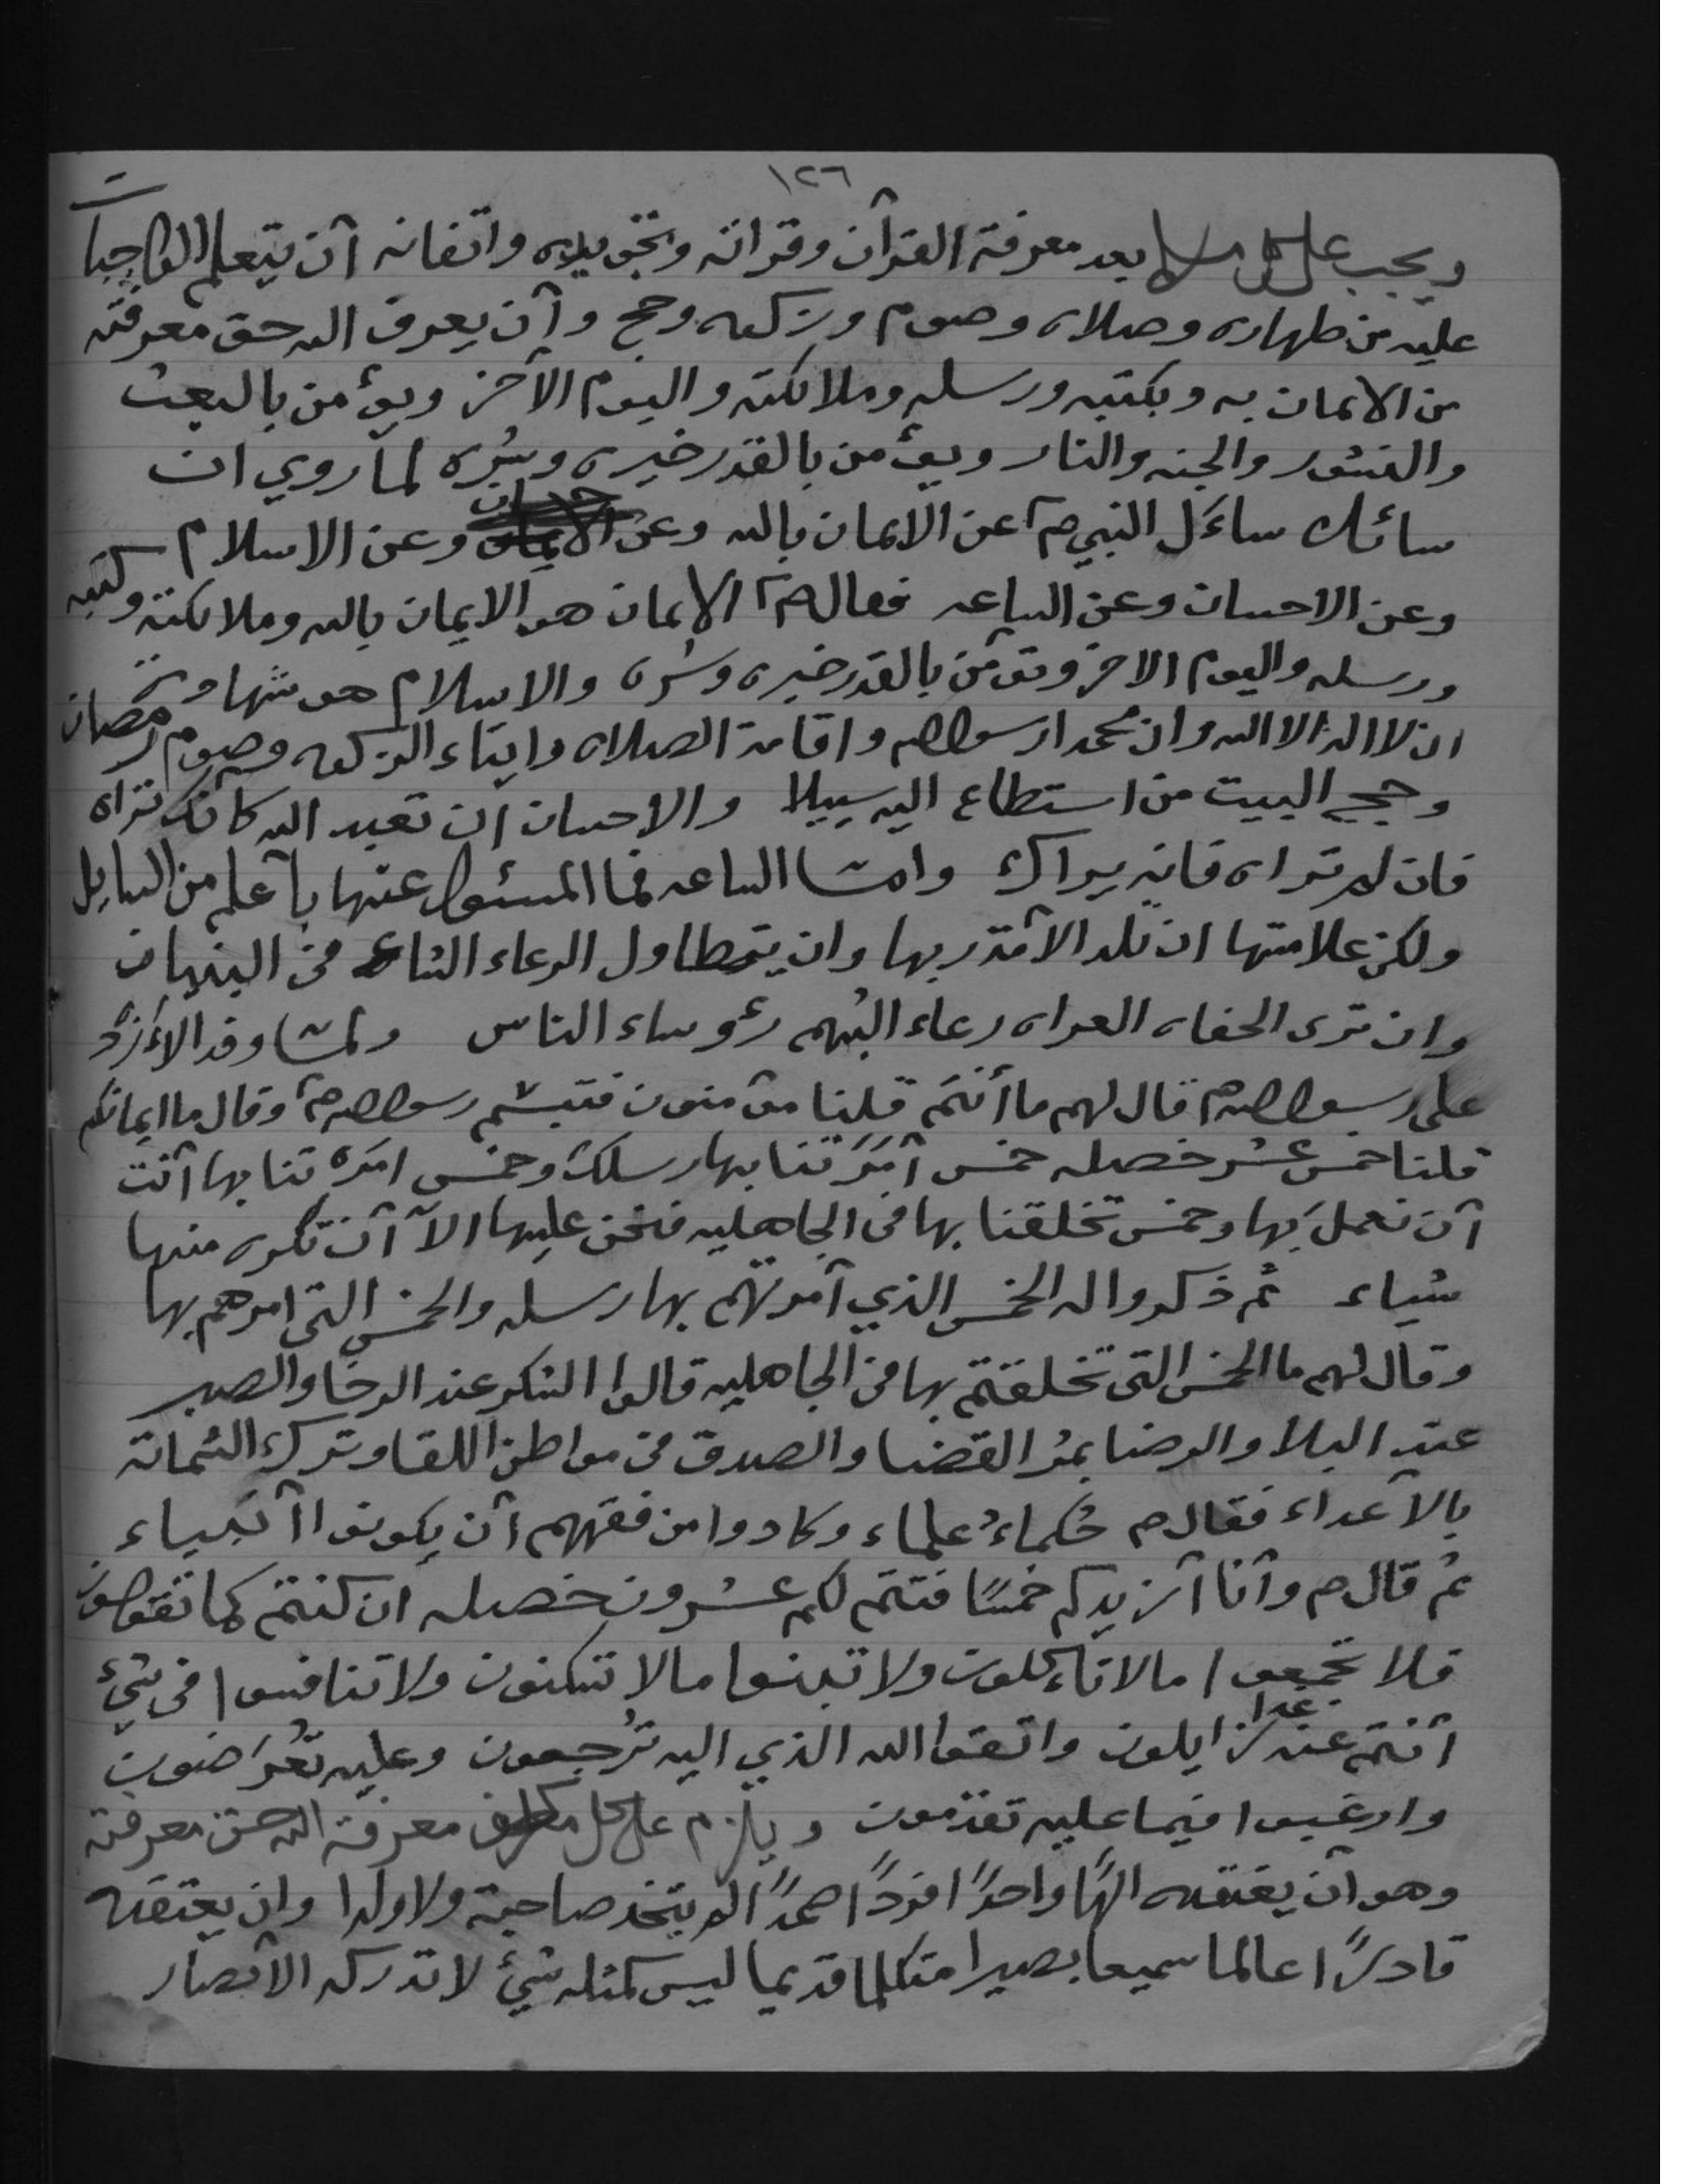 ١٢٦
ويجب على كل مسلم بعد معرفة القرآن وقراته وتجويده واتقانه آن يتعلم الواجبات
عليه من طهاره وصلاه وصوم وزكوه وحج وآن يعرف الله حق معرفته
من الايمان به وبكتبه ورسله وملائكته واليوم الآخر ويؤمن بالبعث
والنشور والجنه والنار ويؤمن بالقدر خيره وشره لما روي ان
سائلا ساءَل النبي صم عن الايمان بالله وعن وعن الاسلام
وعن الاحسان وعن الساعه فقال صم الايمان هو الايمان بالله وملائكته وكتبه
ورسله واليوم الاخر وتؤمن بالقدر خيره وشره والاسلام هو شهادة
ان لا اله الا الله وان محمدا رسول الله واقامة الصلاه وايتاء الزكوه وصوم رمضان
وحج البيت من استطاع اليه سبيلا والاحسان آن تعبد الله كانك تراه
فان لم تراه فانه يراك وامّا الساعه فما المسئول عنها باعلم من السايل
ولكن علامتها ان تلد الآمة ربها وان يتطاول الرعاء الشاء في البنيان
وان ترى الحفاه العراه رعاء البُهم رؤساء الناس ولمّا وفد الاءَزد
على رسول الله صم قال لهم ما أنتم قلنا مؤمنون فتبسّم رسول الله صم وقال ما ايمانكم
قلنا خمس عشر خصله خمس آمَرَتنا بها رسلك وخمس امَرتنا بها آنت
آن نعمل بها وخمس تخلقنا بها في الجاهليه فنحن عليها الاّ آن تكره منها
شياء ثم ذكروا له الخمس الذي آمرتهم بها رسله والخمس التي امرهم بها
وقال لهم ما الخمس التي تخلقتم بها في الجاهليه قالوا الشكر عند الرخا والصبر
عند البلا والرضا بمُر القضا والصدق في مواطن اللقا وترك الشماتة
بالآعداء فقال صم حُكماءُ علماء وكادوا من فقههم آن يكونوا آنبياء
ثم قال صم وآنا آزيدكم خمسًا فتتم لكم عشرون خصله ان كنتم كما تقولون
فلا تجمعوا مالا تاءكلون ولا تبنوا مالا تسكنون ولا تنافسوا في شيء
آنتم عنه غدا زايلون واتقوا الله الذي اليه تُرجعون وعليه تعُرَضون
وارغبوا فيما عليه تقدمون ويلزم على كل مكلف معرفة الله حق معرفته
وهو آن يعتقده الهًا واحدًا فردًا صمدًا لم يتخذ صاحبة ولا ولدا وان يعتقده
قادرًا عالما سميعا بصيرا متكلما قديما ليس كمثله شيء لا تدركه الآبصار